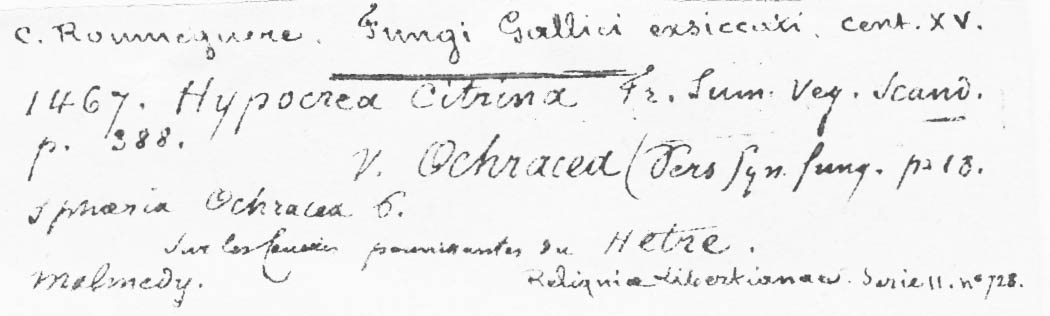 C. Roumeguere. Fungi Gallici exsiccati. cent. XV.
1467. Hypocrea Citrina Fr. Sum. Veg. Scand.
p. 388.
V. Ochracea (Pers Syn. fung. p. 18.
Sphæria Ochracea 6.
Sur les feuilles pourrissantes du Hetre.
Malmedy.
Reliquiæ Libertianae. Serie II. nº 728.